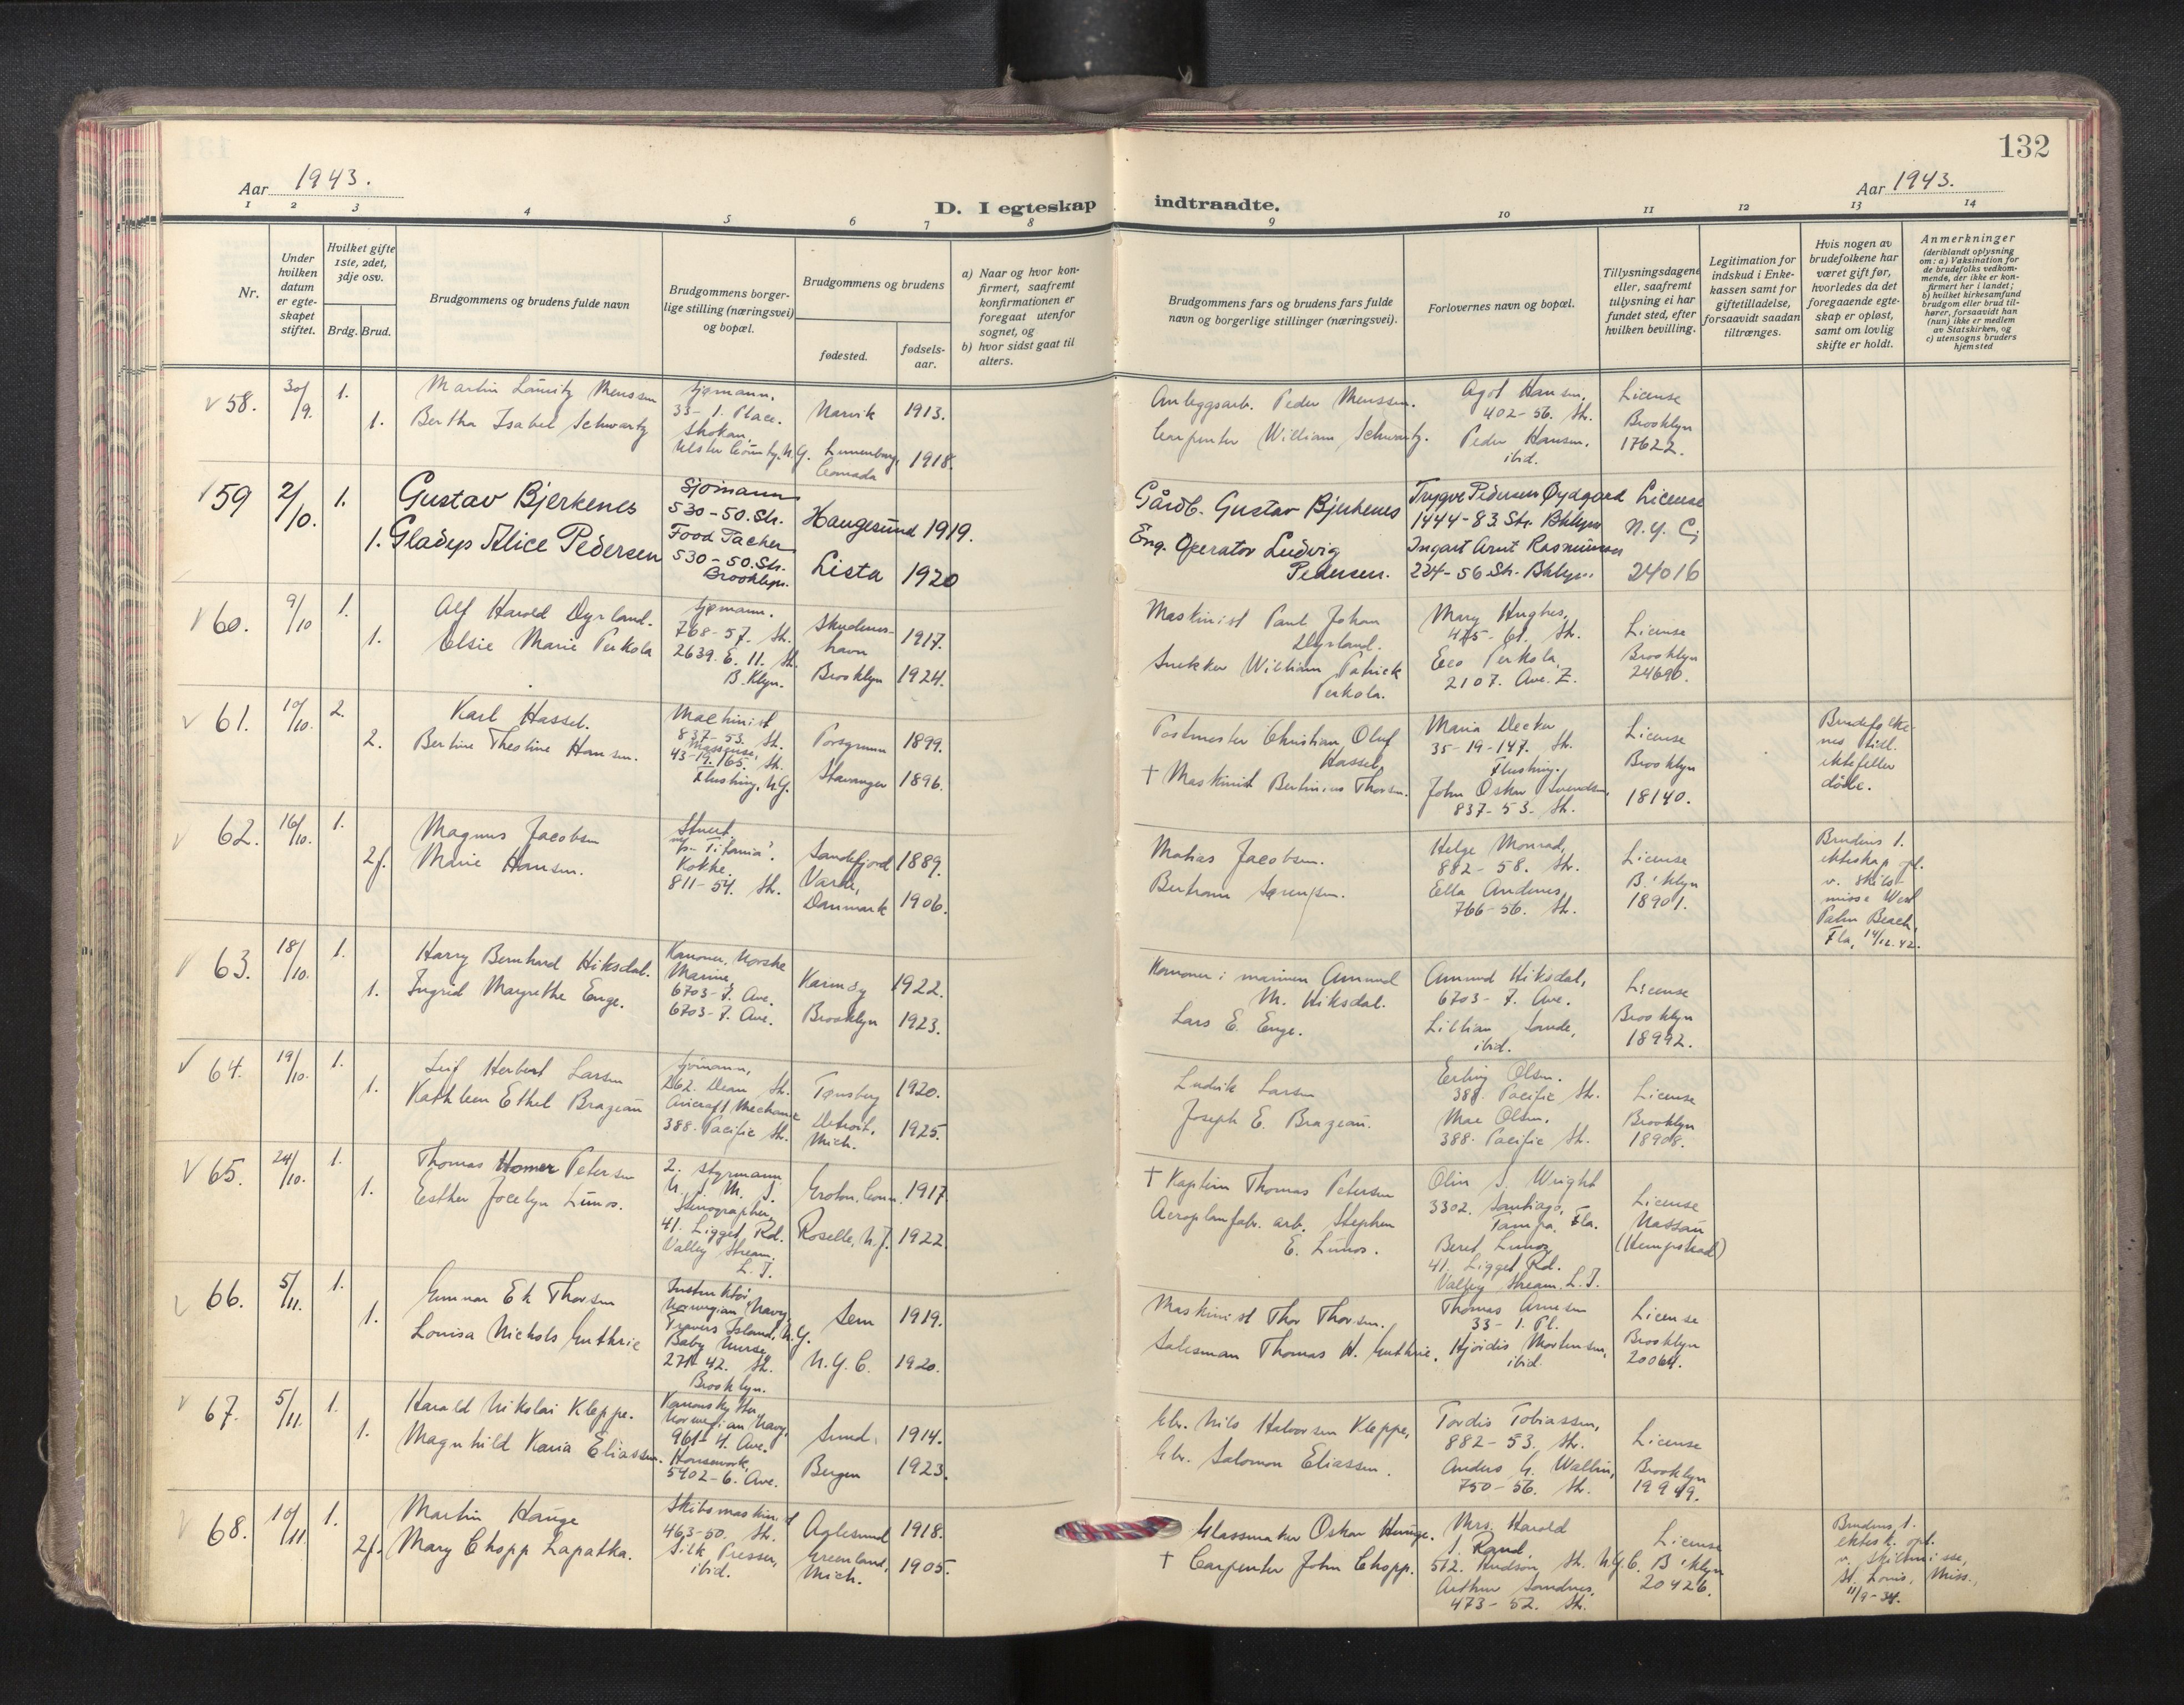 132
Aar 1943.
Aar 1943.
D. I egteskap indtraadte.
1 2 3 4 5 6 7 8 9 10 11 12 13 14
Nr.
Under hvilken datum er egteskapet stiftet.
Hvilket gifte 1ste, 2det, 3dje osv.
Brdg. Brud.
Brudgommens og brudens fulde navn
Brudgommens borgerlige stilling (næringsvei) og bopæl.
Brudgommens og brudens
fødested.
fødselsaar.
a) Naar og hvor konfirmert, saafremt konfirmationen er foregaat utenfor sognet, og
b) hvor sidst gaat til alters.
Brudgommens fars og brudens fars fulde navn og borgerlige stillinger (næringsvei).
Forlovernes navn og bopæl.
Tillysningsdagene eller, saafremt tillysning ei har fundet sted, efter hvilken bevilling.
Legitimation for indskud i Enkekassen samt for giftetilladelse, forsaavidt saadan tiltrænges.
Hvis nogen av brudefolkene har været gift før, hvorledes da det foregaaende egteskap er opløst, samt om lovlig skifte er holdt.
Anmerkninger (deriblandt oplysning om: a) Vaksination for de brudefolks vedkommende, der ikke er konfirmert her i landet; b) hvilket kirkesamfund brudgom eller brud tilhører, forsaavidt han (hun) ikke er medlem av Statskirken, og c) utensogns bruders hjemsted
58. 30/9. 1.
Martin Lauritz Menssen
Sjømann. 33- 1. Place.
Narvik 1913.
Anleggsarb. Peder Menssen.
Agot Hansen, 402-56. Str.
License Brooklyn 17622.
1. Bertha Isabel Schwartz
Shokan, Ulster County, N.Y.
Lunenburg, Canada 1918.
Carpenter William Schwartz.
Peder Hansen, ibid.
59 2/10. 1.
Gustav Bjerkenes
Sjømann 530-50. Str.
Haugesund 1919.
Gårdb. Gustav Bjerkenes
Trygve Pedersen Øydgard 1444-83. Str. Bklyn
License N.Y. C. 24016
1. Gladys Alice Pedersen
Food Packer 530-50. Str. Brooklyn.
Lista 1920
Eng. Operator Ludvig Pedersen.
Ingart Arnt Rasmussen 224-56 Str. Bklyn.
60. 9/10 1.
Alf Harold Dyrland.
Sjømann. 768-57. Str.
Skudeneshavn 1917.
Maskinist Paul Johan Dyrland.
Mary Hughes, 475-61. Str.
License Brooklyn 24690.
1. Elsie Marie Perkola
2639. E. 11. Str. B.klyn.
Brooklyn 1924.
Snekker William Patrick Perkola.
Eeo Perkola, 2107. Ave. Z.
61. 10/10. 2.
Karl Hassel.
Machinist 837-53. Str.
Porsgrunn 1899.
Postmester Christian Oluf Hassel
Maria Decker 35-19-147. Str. Flushing.
License Brooklyn 18140.
Brudefolkenes tidl. ektefeller døde.
2. Bertine Theoline Hansen.
Masseuse, 43-19. 165. Str. Flushing, N.Y.
Stavanger 1896.
† Maskinist Bertinius Thorsen.
John Oskar Svendsen, 837-53. Str.
62. 16/10. 1.
Magnus Jacobsen
Stuert. "Titania".
Sandefjord 1889.
Mathias Jacobsen.
Helge Monrad, 882-58. Str.
License B.'klyn 18901.
Brudens 1. ekteskap opl. v. skilsmisse West Palm Beach, Fla, 14/12.42.
2f. Marie Hansen.
Kokke. 811-54. Str.
Varde, Danmark 1906.
Bertram Sørensen.
Ella Andenes, 766-56. Str.
63. 18/10. 1.
Harry Bernhard Hiksdal.
Kanoner, Norske Marine, 6703-7. Ave.
Karmøy 1922.
Kanoner i marinen Amund M. Hiksdal.
Amund Hiksdal, 6703-7. Ave.
License Brooklyn 18992.
1. Ingrid Margrethe Enge.
6703-7. Ave.
Brooklyn 1923.
Lars E. Enge.
Lillian Sande, ibid.
64. 19/10. 1.
Leif Herbert Larsen
Sjömann, 262. Dean Str.
Tønsberg 1920.
Ludvik Larsen
Erling Olsen. 388. Pacific Str.
License Brooklyn 18908.
1. Kathleen Ethel Brazeau
Aircraft Mechanic 388. Pacific Str.
Detroit, Mich. 1925.
Joseph E. Brazeau.
Mae Olsen, 388. Pacific St.
65. 24/10. 1.
Thomas Homer Petersen
2. styrmann U. S. M. S.
Groton, Conn. 1917
† Kaptein Thomas Petersen
Olin S. Wright 3302. Santiago, Tampa, Fla.
License Nassau (Hempstead)
1. Esther Jocelyn Lunos.
Stenographer, 41. Ligget Rd. Valley Stream, L. I.
Roselle, N.J. 1922.
Aeroplanfabr. arb. Stephen E. Lunos.
Beret Lunos 41. Ligget Rd. Valley Stream. L.I.
66. 5/11. 1.
Gunnar Ek Thorsen
Instruktör Norwegian Navy, Travers Island, N.Y.
Sem 1919.
Maskinist Thor Thorsen.
Thomas Arnesen 33-1. Pl.
License Brooklyn 20064.
1. Louisa Nichols Guthrie
Baby Nurse, 271-42. St. Brooklyn.
N.Y.C. 1920.
Salesman Thomas W. Guthrie.
Hjördis Mortensen, ibid.
67. 5/11. 1.
Harald Nikolai Kleppe.
Kanonskytter Norwegian Navy, 961-4. Ave.
Sund. 1914.
Gbr. Nils Halvorsen Kleppe,
Tordis Tobiassen, 882-53. Str.
License Brooklyn 19949.
1. Magnhild Karia Eliassen.
Housework, 5402-6. Ave.
Bergen 1923.
Gbr. Salomon Eliassen.
Anders G. Wallin, 750-56. Str.
68. 10/11. 1.
Martin Hauge
Skibsmaskinist 463-50. Str.
Aalesund 1918.
Glassmaker Oskar Hauge.
Mrs. Harold J. Rand, 512. Hudson St. N.Y.C.
License B'klyn 20426.
Brudens 1. ektesk. opl. v. skilsmisse, St. Louis, Miss., 11/9-34.
2f. Mary Chopp Lapatka.
Silk Presser, ibid.
Greenland, Mich. 1905.
† Carpenter John Chopp.
Arthur Sandnes, 473-52. Str.